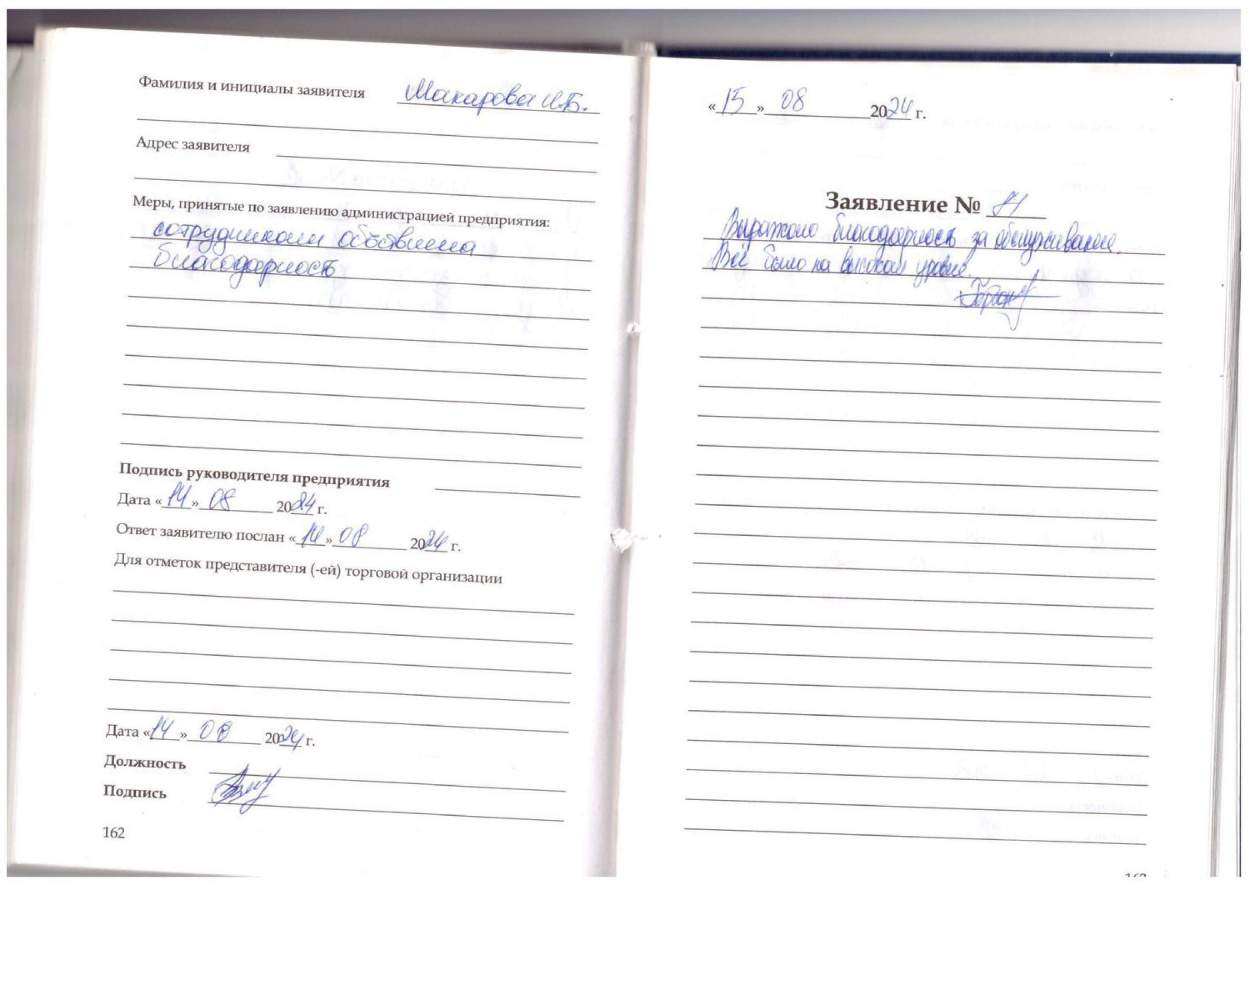 Фамилия и инициалы заявителя Макарова И.Б.
Адрес заявителя
Меры, принятые по заявлению администрацией предприятия:
сотрудникам объявлена
благодарность
Подпись руководителя предприятия
Дата «14» 08 2024 г.
Ответ заявителю послан «14» 08 2024 г.
Для отметок представителя (-ей) торговой организации
Дата «14» 08 2024 г.
Должность
Подпись
162
«15» 08 2024 г.
Заявление №
Выражаю благодарность за обслуживание.
Всё было на высоком уровне.